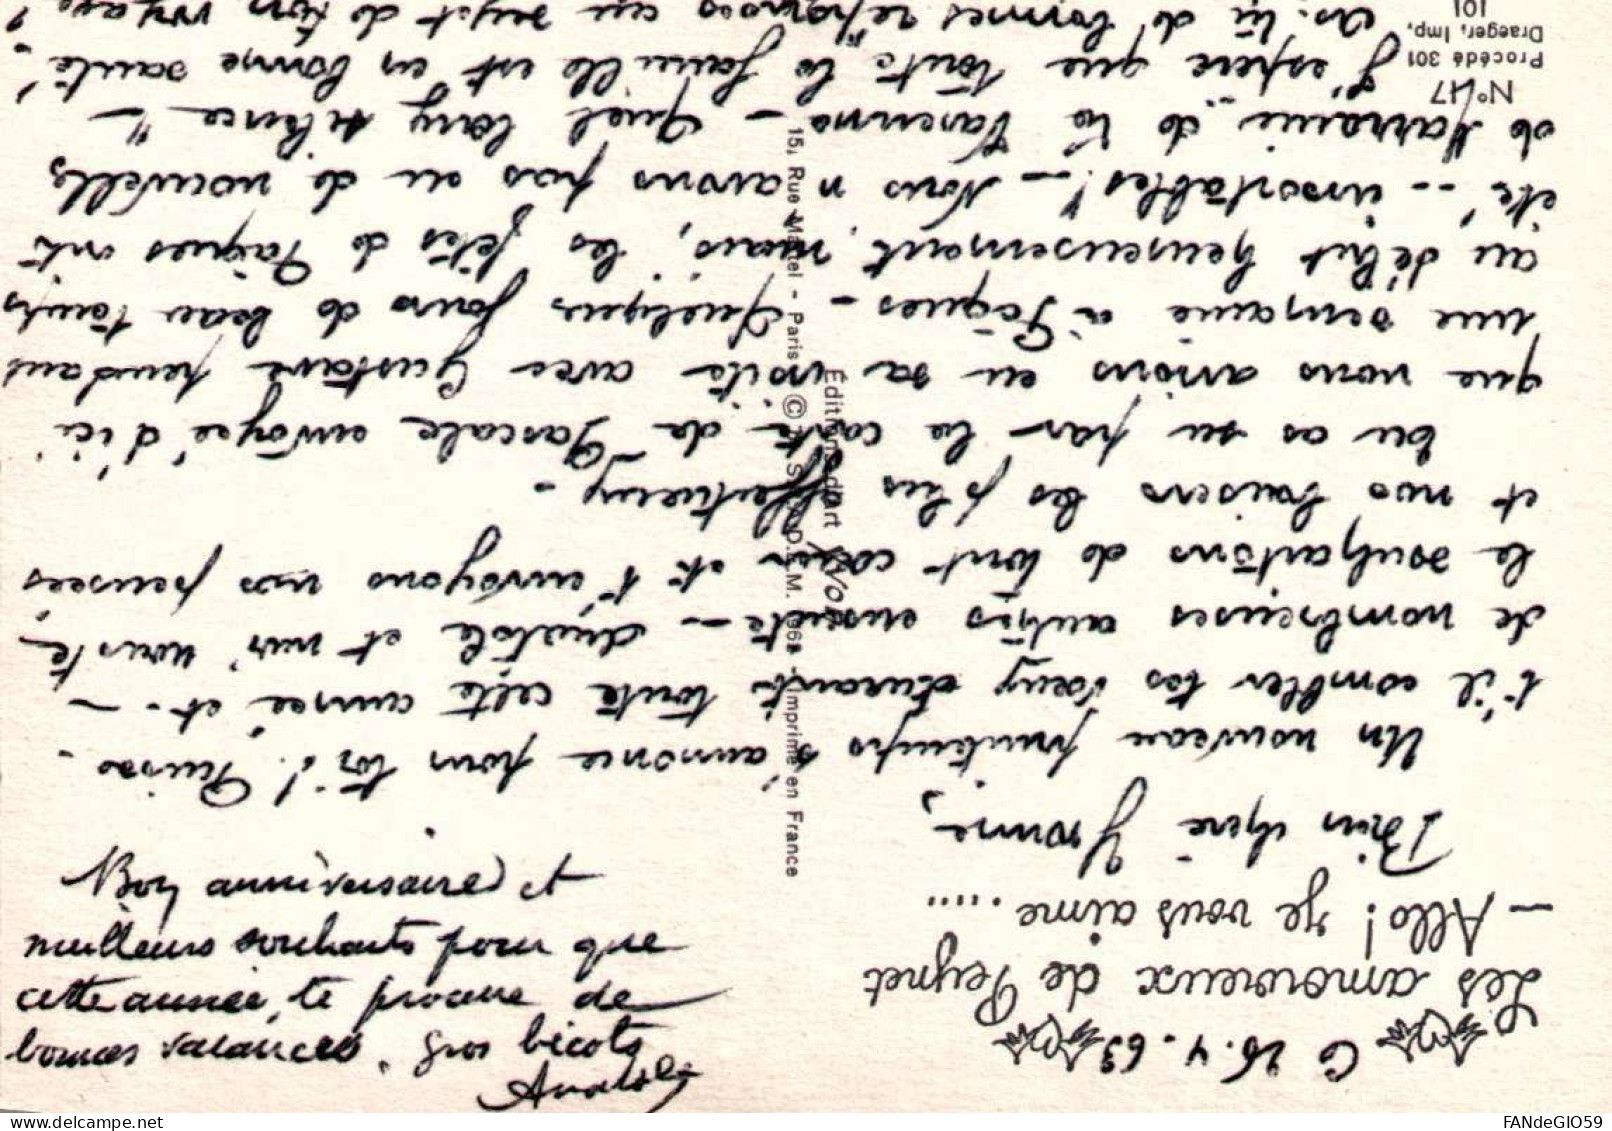 Les amoureux de Peynet
— Allo! je vous aime .....
Le 26.4.63
Bien chère Yvonne,
Un nouveau printemps s'annonce pour toi! Puisse-
t'il combler tes vœux durant toute cette année, et - -
de nombreuses autres ensuite - Anatole et moi nous te
le souhaitons de tout cœur et t'envoyons nos pensées
et nos baisers les plus affectueux -
Tu as su par la carte de Pascale envoyée d'ici
que nous avions eu sa visite avec Gustave pendant
une semaine à Pâques - Quelques jours de beau temps
au début heureusement, mais, les fêtes de Pâques ont
été - - insortables! - Nous n'avons pas eu de nouvelles
de Marraine de la Varenne - Quel long silence! -
J'espère que toute la famille est en bonne santé! -
As-tu de bonnes réponses au sujet de ton voyage?
N° 117
Procédé 301
Draeger, Imp.
101
Editions d'art Yvon
15, Rue Martel - Paris © by S.P.A.D.E.M. 1961 - Imprimé en France
Bon anniversaire et
meilleurs souhaits pour que
cette année, te procure de
bonnes vacances. Gros bicots
Anatole
FANdeGIO59